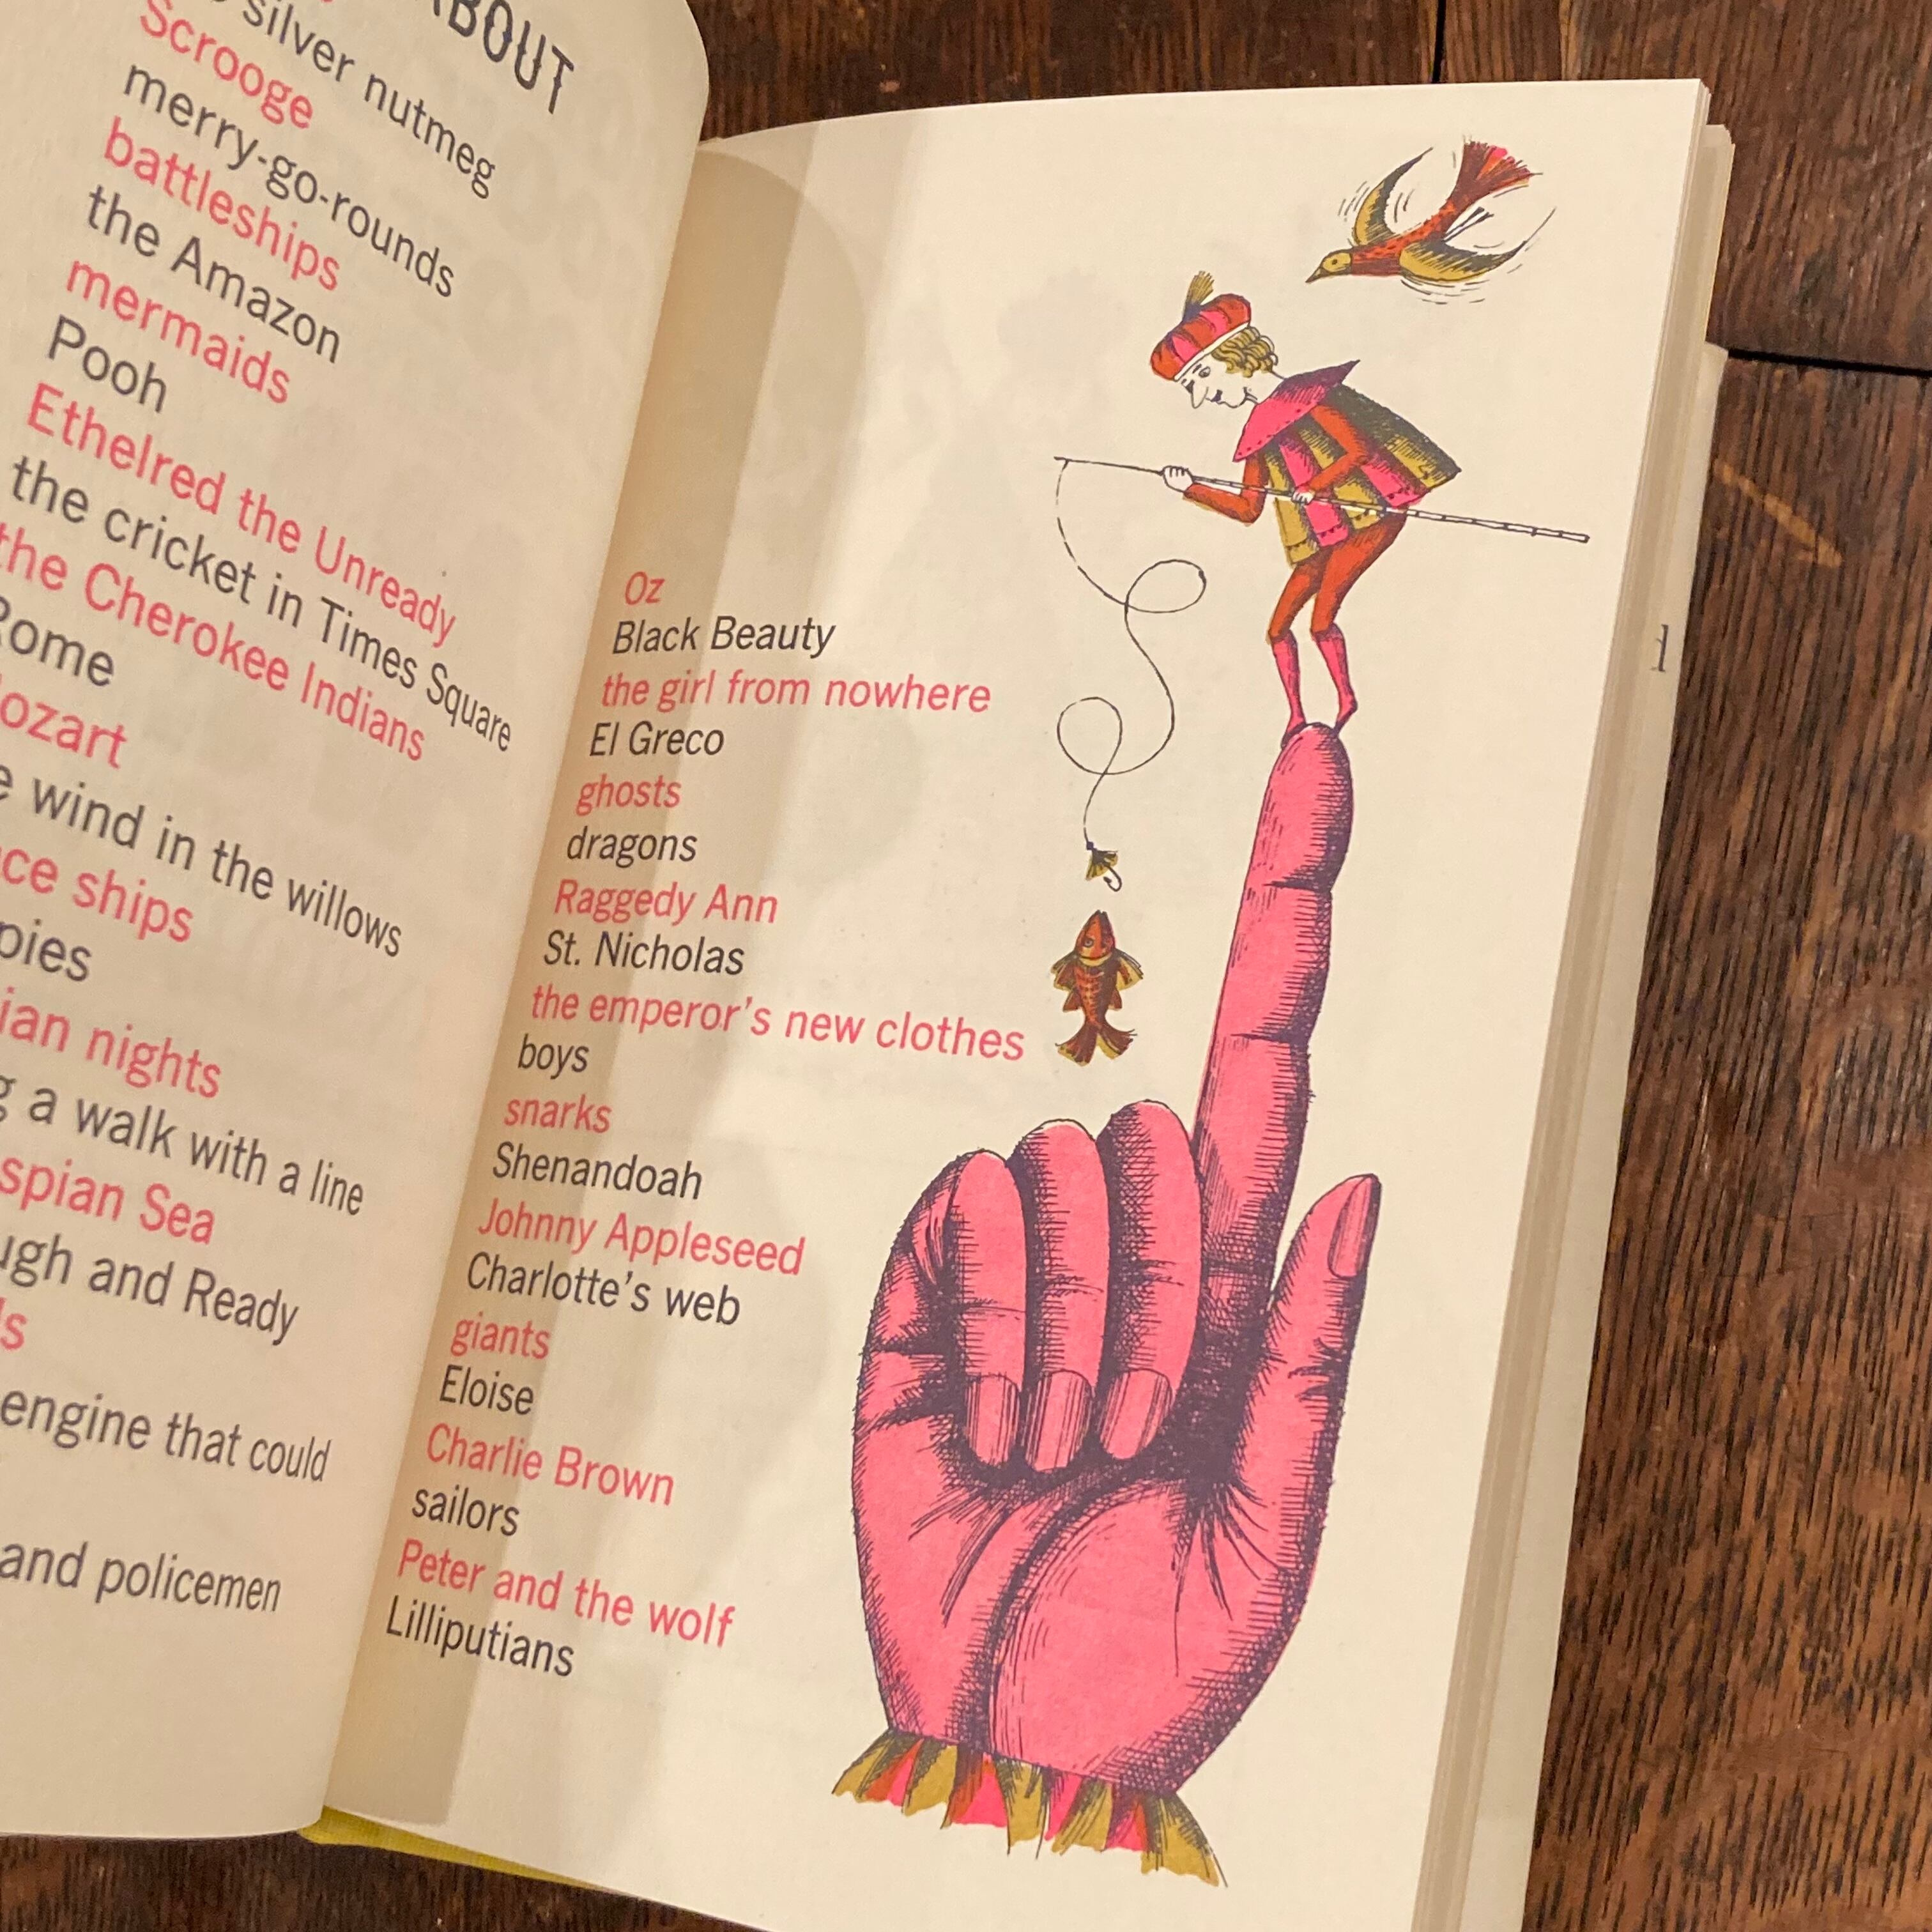 ABOUT
silver nutmeg
Scrooge
merry-go-rounds
battleships
the Amazon
mermaids
Pooh
Ethelred the Unready
the cricket in Times Square
the Cherokee Indians
Rome
wind in the willows
ships
nights
a walk with a line
Sea
and Ready
engine that could
and policemen
Oz
Black Beauty
the girl from nowhere
El Greco
ghosts
dragons
Raggedy Ann
St. Nicholas
the emperor's new clothes
boys
snarks
Shenandoah
Johnny Appleseed
Charlotte's web
giants
Eloise
Charlie Brown
sailors
Peter and the wolf
Lilliputians